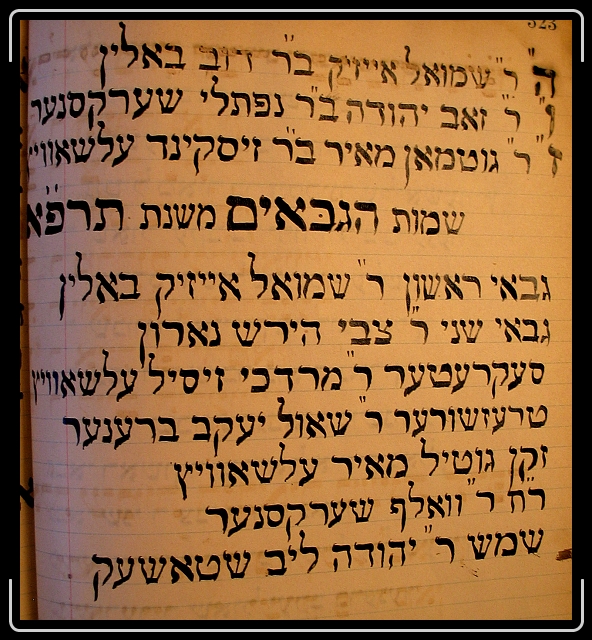 323
ה" ר" שמואל אייזיק בר" דוב באלין
ו" ר" זאב יהודה בר" נפתלי שערקסנער
ז" ר" גוטמאן מאיר בר" זיסקינד עלשאוויץ
שמות הגבאים משנת תרפ"א
גבאי ראשון ר" שמואל אייזיק באלין
גבאי שני ר" צבי הירש נארון
סעקרעטער ר" מרדכי זיסיל עלשאוויץ
טרעזשורער ר" שאול יעקב ברענער
זקן גוטיל מאיר עלשאוויץ
ר"ח ר" וואלף שערקסנער
שמש ר" יהודה ליב שטאשעק